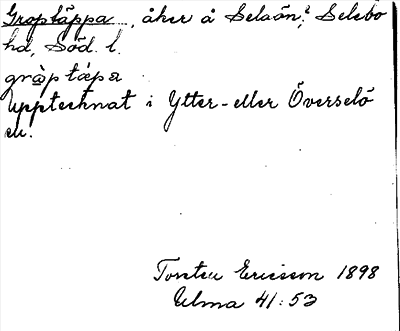 Groptäppa, åker å Selaön,² Selebo
hd, Söd. l.
gròptǽpa
Upptecknat i Ytter- eller Överselö
sn.
Torsten Ericsson 1898
Ulma 41:53